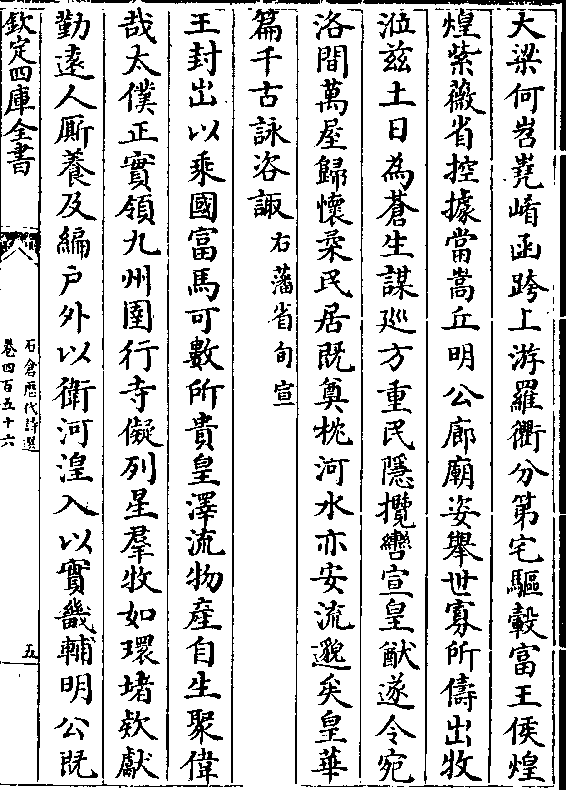 大梁何岧嶤崤函跨上游羅衢分第宅驅轂富王侯煌
煌紫薇省控據當嵩丘明公廊廟姿舉世寡所儔出牧
涖兹土日為蒼生謀廵方重民隱攬轡宣皇猷遂令宛
洛間萬屋歸懷柔民居既奠枕河水亦安流邈矣皇華
篇千古詠咨諏右藩省旬宣
王封出以乘國富馬可數所貴皇澤流物產自生聚偉
哉太僕正實領九州圉行寺儗列星羣牧如環堵欸獻
勤遠人厮養及編户外以衛河湟入以實畿輔明公既
欽定四庫全書
石倉歷代詩選
卷四百五十六
五